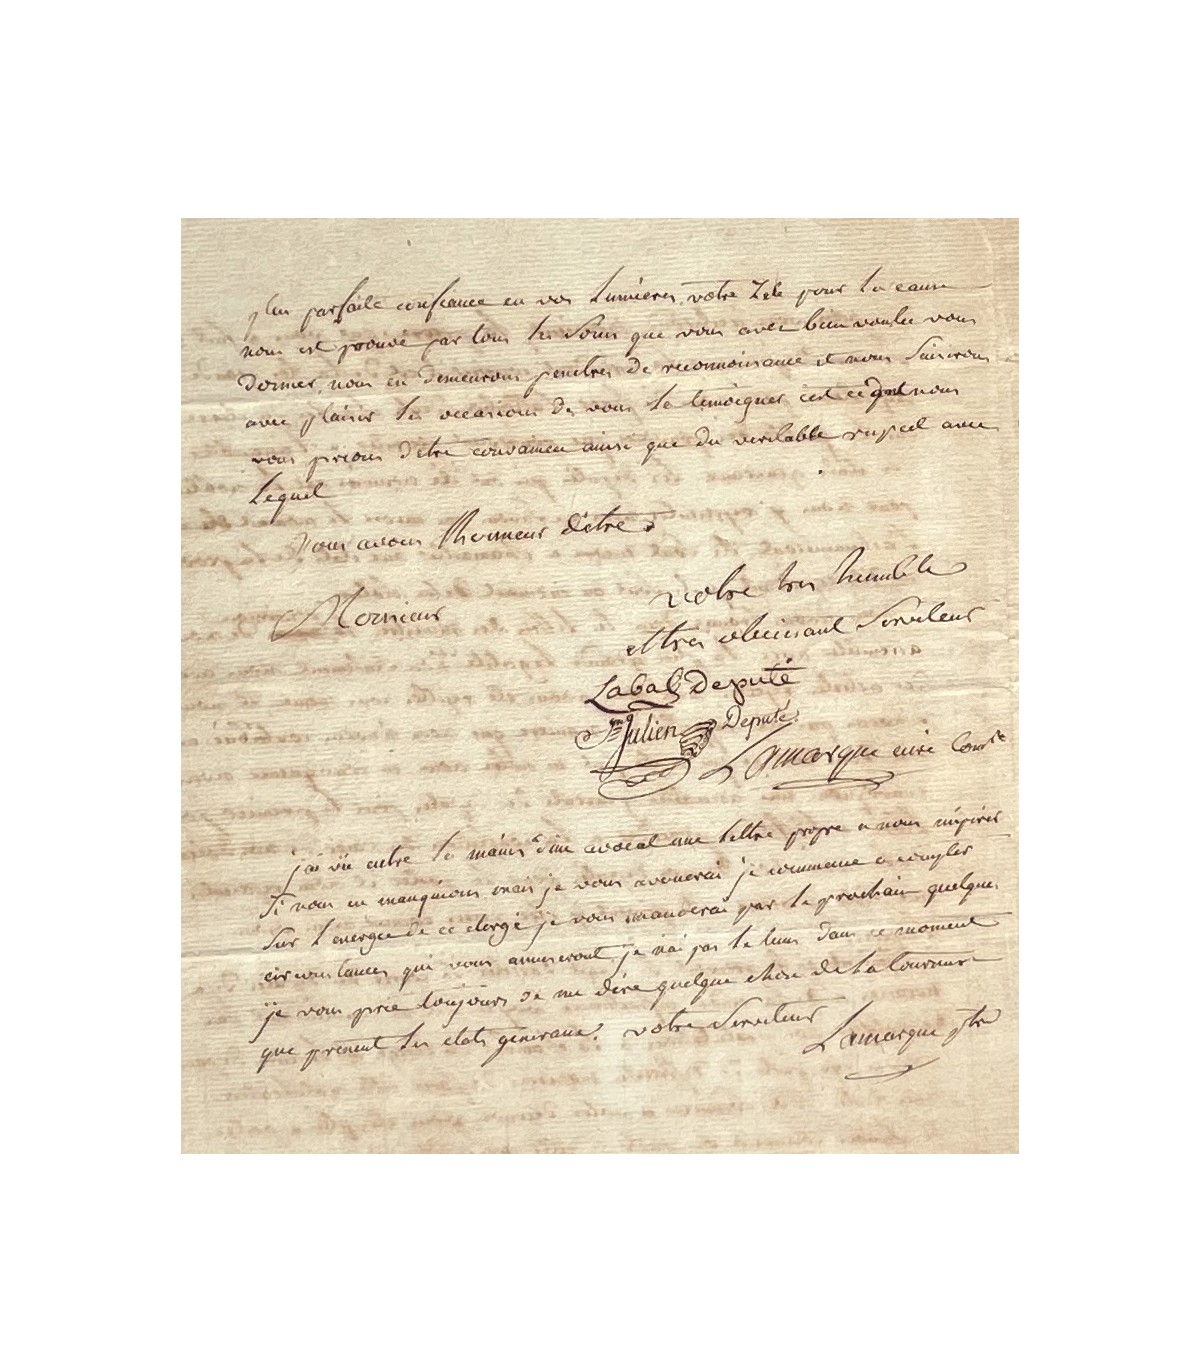 plus parfaite confiance en vos lumieres, votre Zele pour la cause
nous est prouvé par tous les soins que vous avez bien voulu vous
donner, nous en demeurons penetres de reconnoissance et nous saisirons
avec plaisir les occasions de vous le temoigner c'est ce dont nous
vous prions d'etre convaincu ainsi que du veritable respect avec
lequel
Nous avons l'honneur d'etre
Monsieur
votre tres humble
et tres obeissant Serviteur
Labat Deputé
St Julien Deputé
Lamarque curé
j'ai vü entre les mains d'un avocat une lettre propre a nous inspirer
Si nous en manquions mais je vous avouerai je commence a compter
sur l'energie de ce clergé je vous manderai par le prochain quelques
circonstances qui vous amuseront, je n'ai pas le tems dans ce moment
je vous prie toujours de me dire quelque chose de la tournure
que prenent les etats generaux. votre Serviteur Lamarque ptre